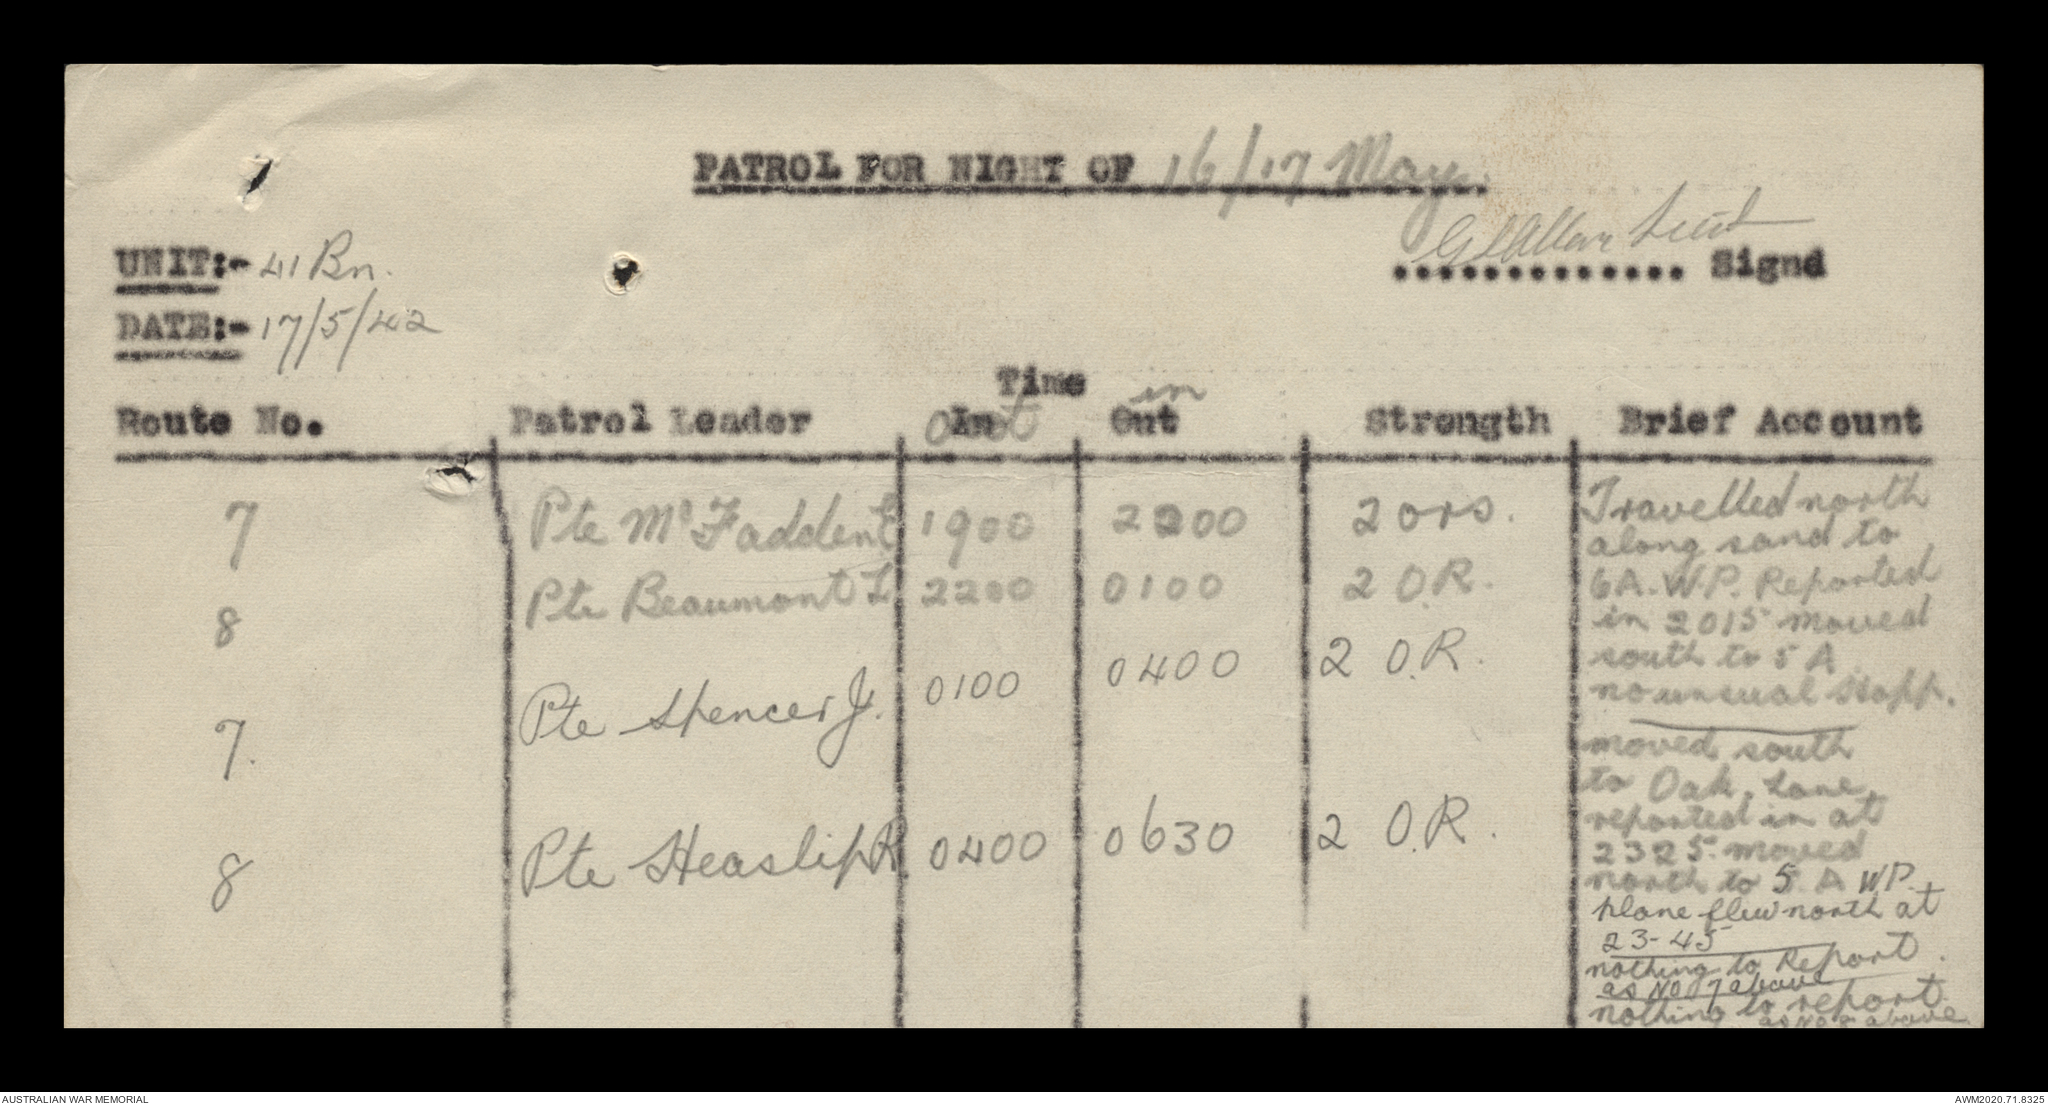 PATROL FOR NIGHT OF 16/17 May.
UNIT:- 41 Bn.
Lieut
............. Signd
DATE:- 17/5/42
Time
Route No. Patrol Leader In Out in Out Strength Brief Account
7 Pte McFadden E 1900 2200 2 ors.
8 Pte Beaumont L 2200 0100 2 O.R.
7. Pte Spencer J. 0100 0400 2 O.R.
8 Pte Heaslip R. 0400 0630 2 O.R.
Travelled north
along sand to
6A. W.P. Reported
in 2015 moved
south to 5 A
no unusual happ.
moved south
to Oak Lane
reported in at
2325 moved
north to 5 A WP.
plane flew north at
23-45
nothing to Report.
as No 7 above
nothing to report.
as No 8 above
AUSTRALIAN WAR MEMORIAL
AWM2020.71.8325